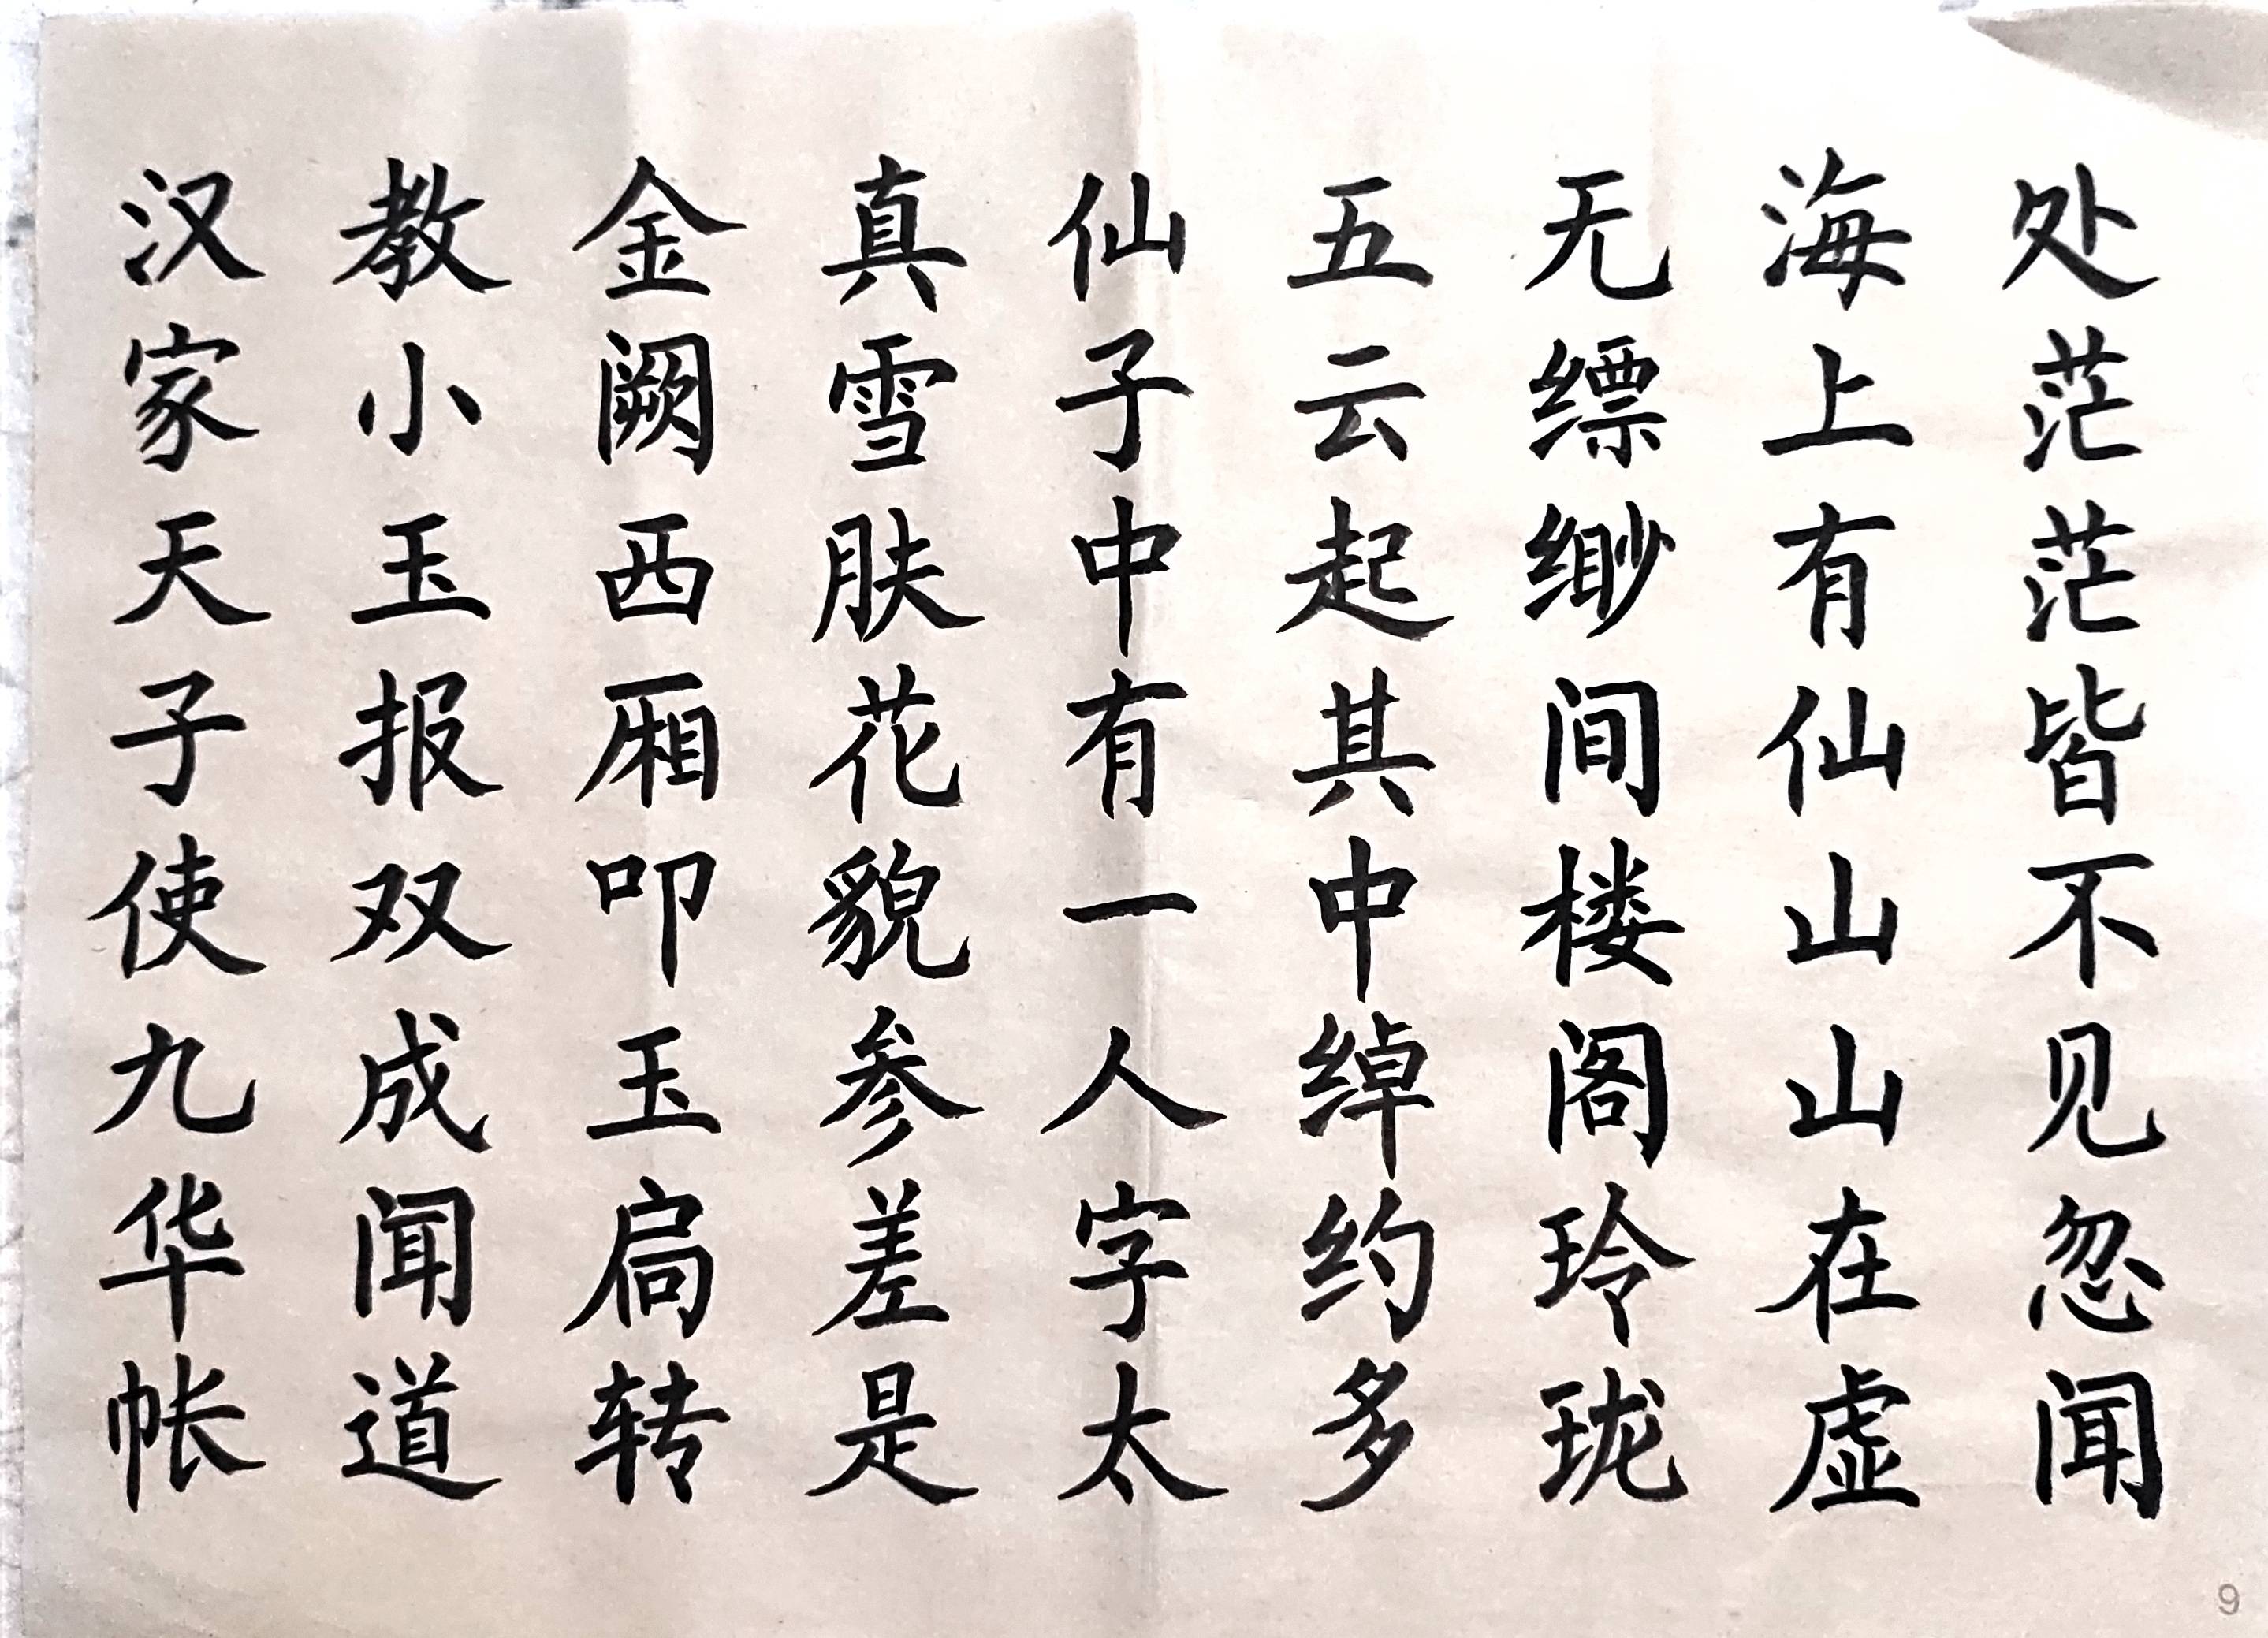 处茫茫皆不见忽闻
海上有仙山山在虚
无缥缈间楼阁玲珑
五云起其中绰约多
仙子中有一人字太
真雪肤花貌参差是
金阙西厢叩玉扃转
教小玉报双成闻道
汉家天子使九华帐
9